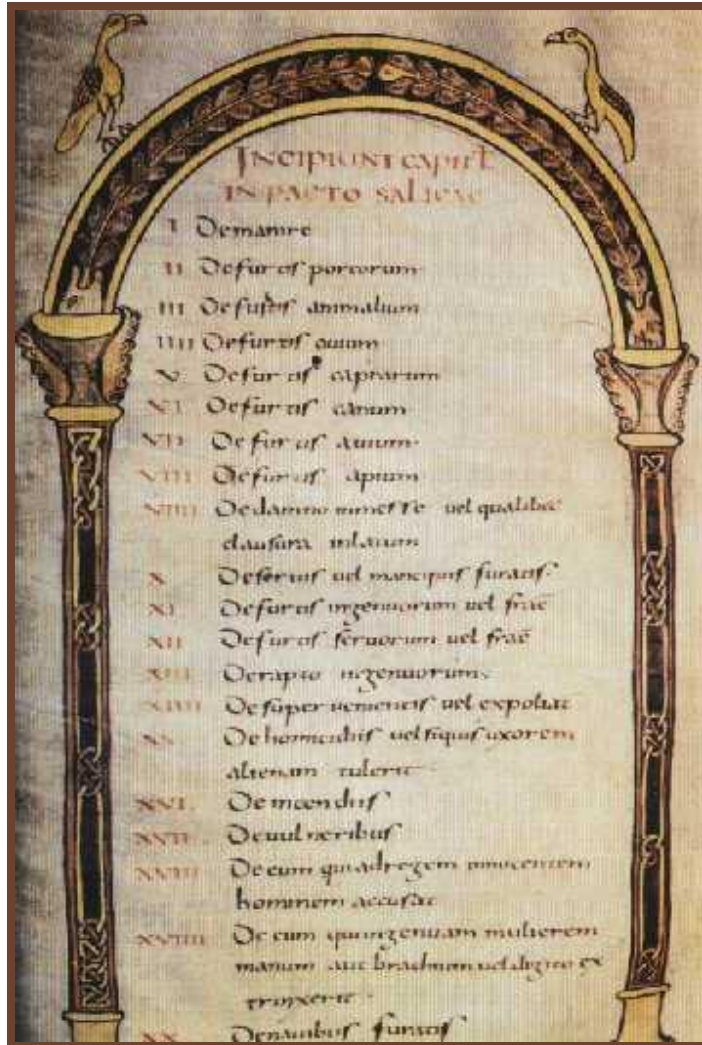 INCIPIUNT CAPIT
IN PACTO SALICAE
I De manire
II De furtis porcorum
III De furtis animalium
IIII De furtis ouium
V De furtis caprarum
VI De furtis canum
VII De furtis auium
VIII De furtis apium
VIIII De damno in messe uel qualibet
clausura inlatum
X De seruis uel mancipiis furatis
XI De furtis ingenuorum uel frac̄
XII De furtis seruorum uel frac̄
XIII De rapto ingenuorum
XIIII De superuenientis uel expoliat
XV De homicidiis uel si quis uxorem
alienam tulerit
XVI De incendiis
XVII De uulneribus
XVIII De eum qui ad regem innocentem
hominem accusat
XVIIII De eum qui ingenuam mulierem
manum aut brachium uel digito ex
trinxerit
XX De nauibus furatis